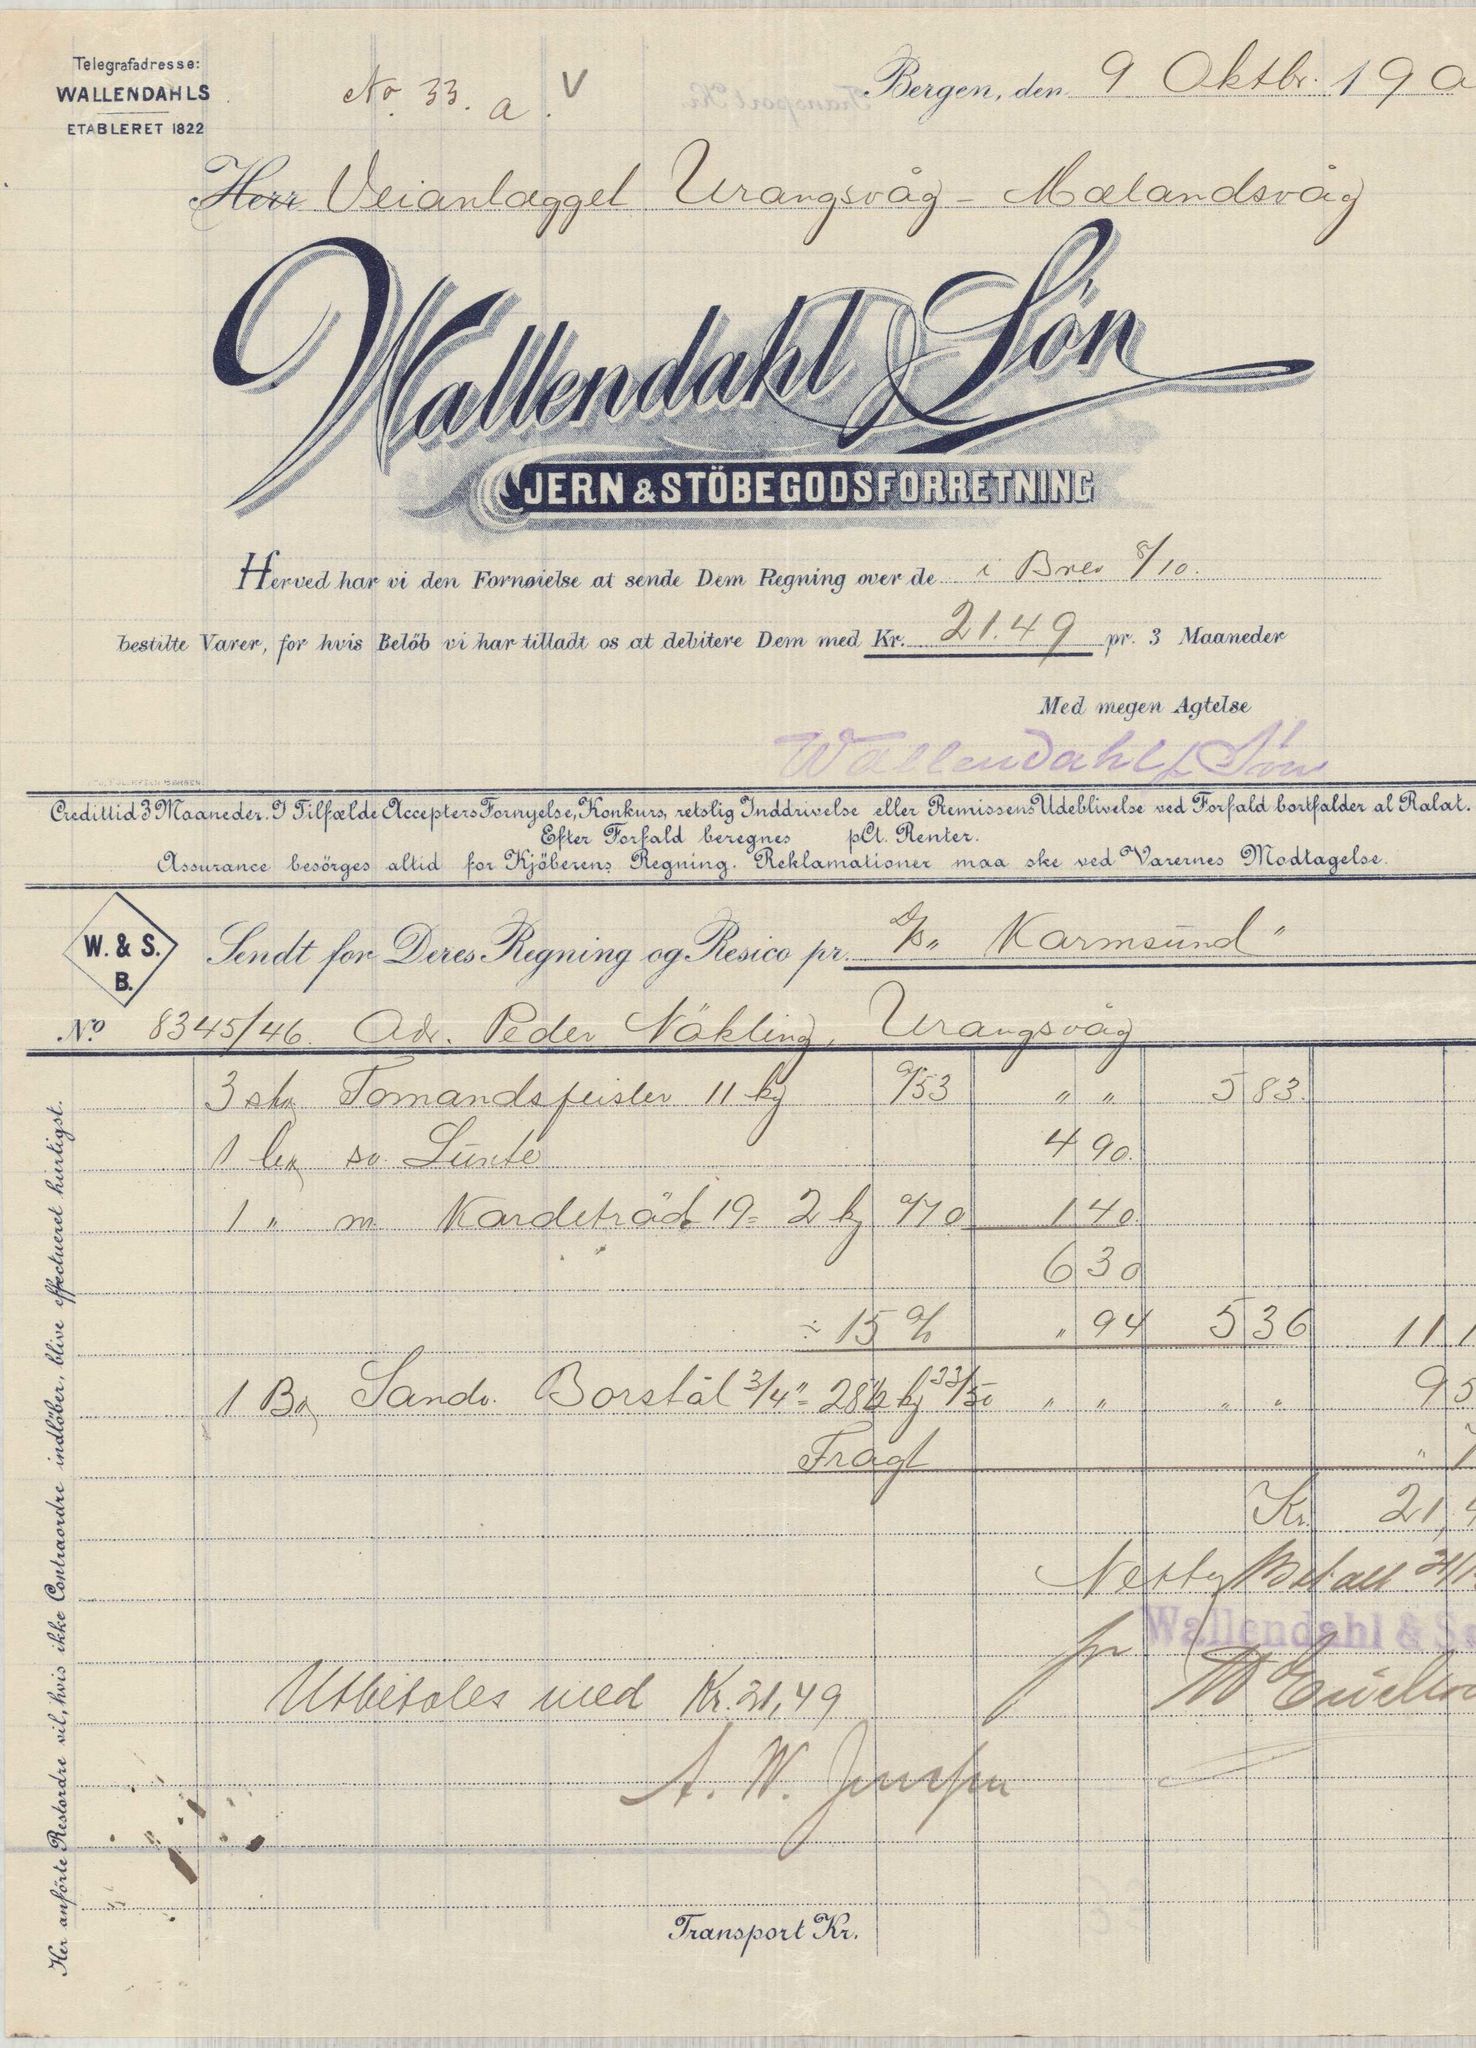 Telegrafadresse:
WALLENDAHLS
ETABLERET 1822
No. 33. a. V
Bergen, den 9 Oktbr. 190
Herr Veianlægget Urangsvåg - Mælandsvåg
Wallendahl & Sön
JERN & STÖBEGODSFORRETNING
Herved har vi den Fornøielse at sende Dem Regning over de i Brev 8/10.
bestilte Varer, for hvis Belöb vi har tilladt os at debitere Dem med Kr. 21.49 pr. 3 Maaneder
Med megen Agtelse
Wallendahl & Sön
Credittid 3 Maaneder. I Tilfælde Accepters Fornyelse, Konkurs, retslig Inddrivelse eller Remissens Udeblivelse ved Forfald bortfalder al Rabat.
Efter Forfald beregnes pCt. Renter.
Assurance besörges altid for Kjöberens Regning. Reklamationer maa ske ved Varernes Modtagelse.
W. & S.
B.
Sendt for Deres Regning og Resico pr. D/S „ Karmsund "
No 8345/46. Adr. Peder Nökling, Urangsvåg
3 stk Tomandsfeisler 11 kg a/53 " " 5 83.
1 sv. Lunte 4 90.
1 " m Kardetråd 19 = 2 kg a/70 1 40.
6 30
÷ 15 % " 94 5 36 11 1
1 Sandv. Borstål 3/4" = 28½ kg 33/50 " " " " 9 5
Fragt "
Kr. 21,4
Netto Betalt
pr Wallendahl & S
Utbetales med Kr. 21,49
A. W.
Her anförte Restordre vil, hvis ikke Contraordre indlöber, blive effectueret hurtigst.
Transport Kr.